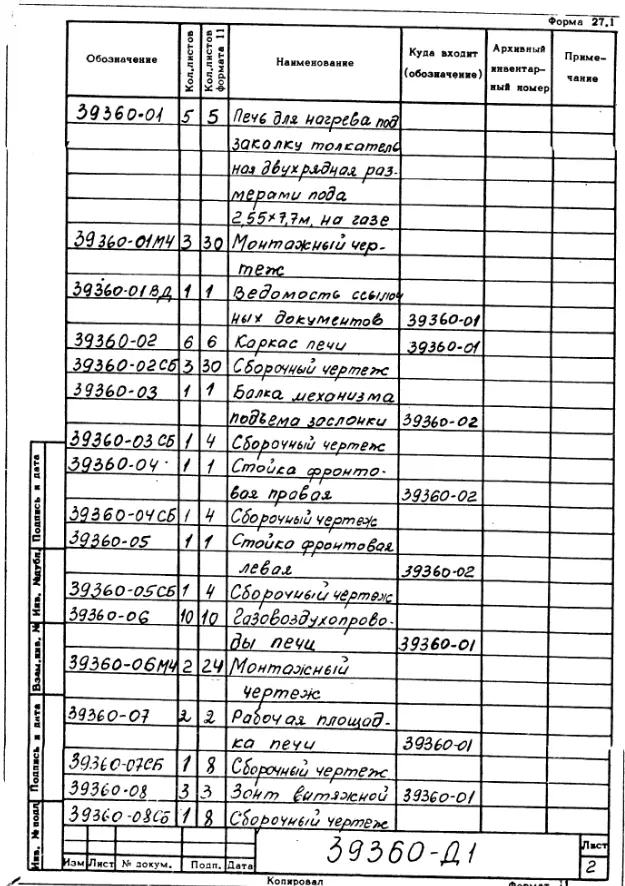 Форма 27.1
Обозначение Кол.листов Кол.листов формата 11 Наименование Куда входит (обозначение) Архивный инвентар-ный номер Приме-чание
39360-01 5 5 Печь для нагрева под
закалку толкатель
ная двухрядная раз-
мерами пода
2,55×7,7м, на газе
39360-01МЧ 3 30 Монтажный чер-
теж
39360-01ВД 1 1 Ведомость ссылоч
ных документов 39360-01
39360-02 6 6 Каркас печи 39360-01
39360-02СБ 3 30 Сборочный чертеж
39360-03 1 1 Балка механизма
подъема заслонки 39360-02
39360-03СБ 1 4 Сборочный чертеж
39360-04 1 1 Стойка фронто-
вая правая 39360-02
39360-04СБ 1 4 Сборочный чертеж
39360-05 1 1 Стойка фронтовая
левая 39360-02
39360-05СБ 1 4 Сборочный чертеж
39360-06 10 10 Газовоздухопрово-
ды печи 39360-01
39360-06МЧ 2 24 Монтажный
чертеж
39360-07 2 2 Рабочая площад-
ка печи 39360-01
39360-07СБ 1 8 Сборочный чертеж
39360-08 3 3 Зонт вытяжной 39360-01
39360-08СБ 1 8 Сборочный чертеж
Подпись и дата
Инв. №дубл.
Взам.инв. №
Подпись и дата
Инв. № подл
Изм Лист № докум. Подп. Дата
39360-Д1
Лист
2
Копировал Формат 11